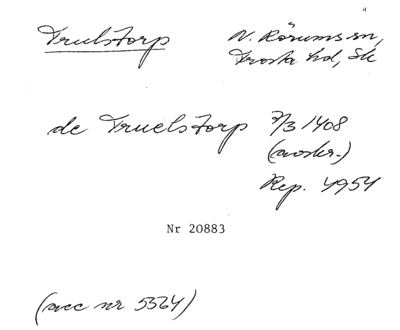 Trulstorp
N. Rörums sn,
Frosta hd, Sk
de Truelstorp 7/3 1408
(avskr.)
Rep. 4954
Nr 20883
(acc nr 5564)